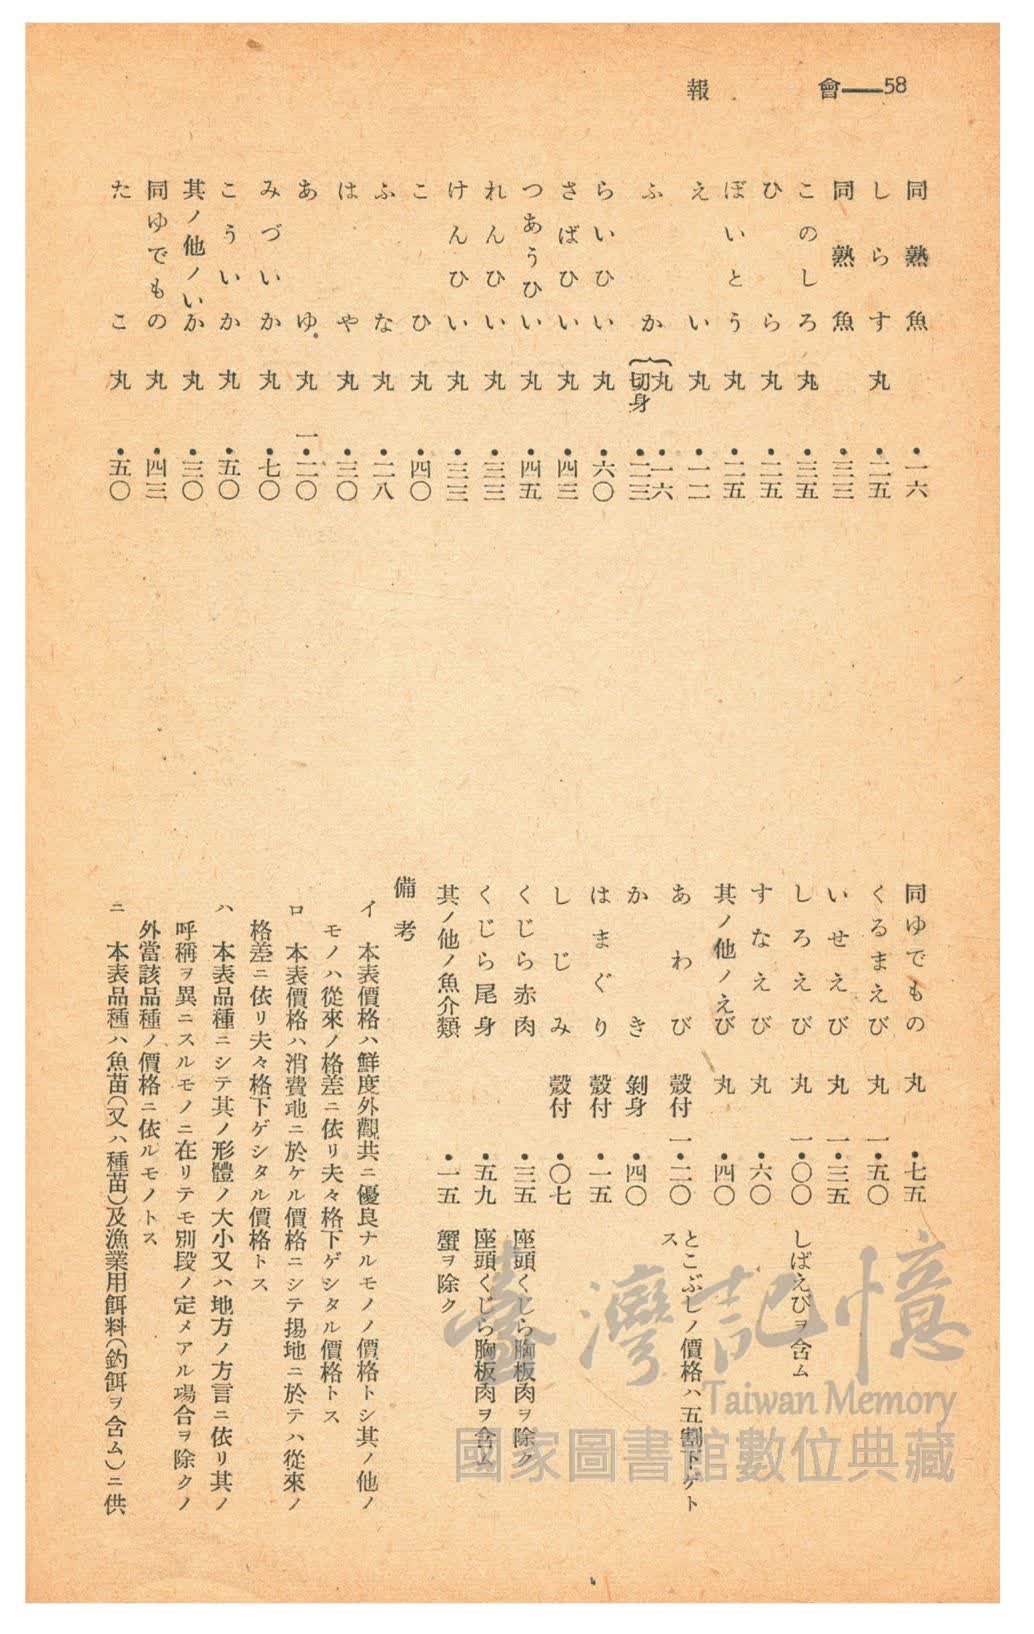 報　會――58
同熟魚　・一六
しらす　丸　・二五
同熟魚　・三三
このしろ　丸　・三五
ひら　丸　・二五
ぼいとう　丸　・二五
えい　丸　・一二
ふか　丸　・一六
切身　・二三
らいひい　丸　・六〇
さばひい　丸　・四三
つあうひい　丸　・四五
れんひい　丸　・三三
けんひい　丸　・三三
こひ　丸　・四〇
ふな　丸　・二八
はや　丸　・三〇
あゆ　丸　一・二〇
みづいか　丸　・七〇
こういか　丸　・五〇
其ノ他ノいか　丸　・三〇
同ゆでもの　丸　・四三
たこ　丸　・五〇
同ゆでもの　丸　・七五
くるまえび　丸　一・五〇
いせえび　丸　一・三五
しろえび　丸　一・〇〇　しばえびヲ含ム
すなえび　丸　・六〇
其ノ他ノえび　丸　・四〇
あわび　殼付　一・二〇　とこぶしノ價格ハ五割下ゲト
ス
かき　剝身　・四〇
はまぐり　殼付　・一五
しじみ　殼付　・〇七
くじら赤肉　・三五　座頭くじら胸板肉ヲ除ク
くじら尾身　・五九　座頭くじら胸板肉ヲ含ム
其ノ他ノ魚介類　・一五　蟹ヲ除ク
備考
イ　本表價格ハ鮮度外觀共ニ優良ナルモノノ價格トシ其ノ他ノ
モノハ從來ノ格差ニ依リ夫々格下ゲシタル價格トス
ロ　本表價格ハ消費地ニ於ケル價格ニシテ揚地ニ於テハ從來ノ
格差ニ依リ夫々格下ゲシタル價格トス
ハ　本表品種ニシテ其ノ形體ノ大小又ハ地方ノ方言ニ依リ其ノ
呼稱ヲ異ニスルモノニ在リテモ別段ノ定メアル場合ヲ除クノ
外當該品種ノ價格ニ依ルモノトス
ニ　本表品種ハ魚苗(又ハ種苗)及漁業用餌料(釣餌ヲ含ム)ニ供
臺灣記憶
Taiwan Memory
國家圖書館數位典藏